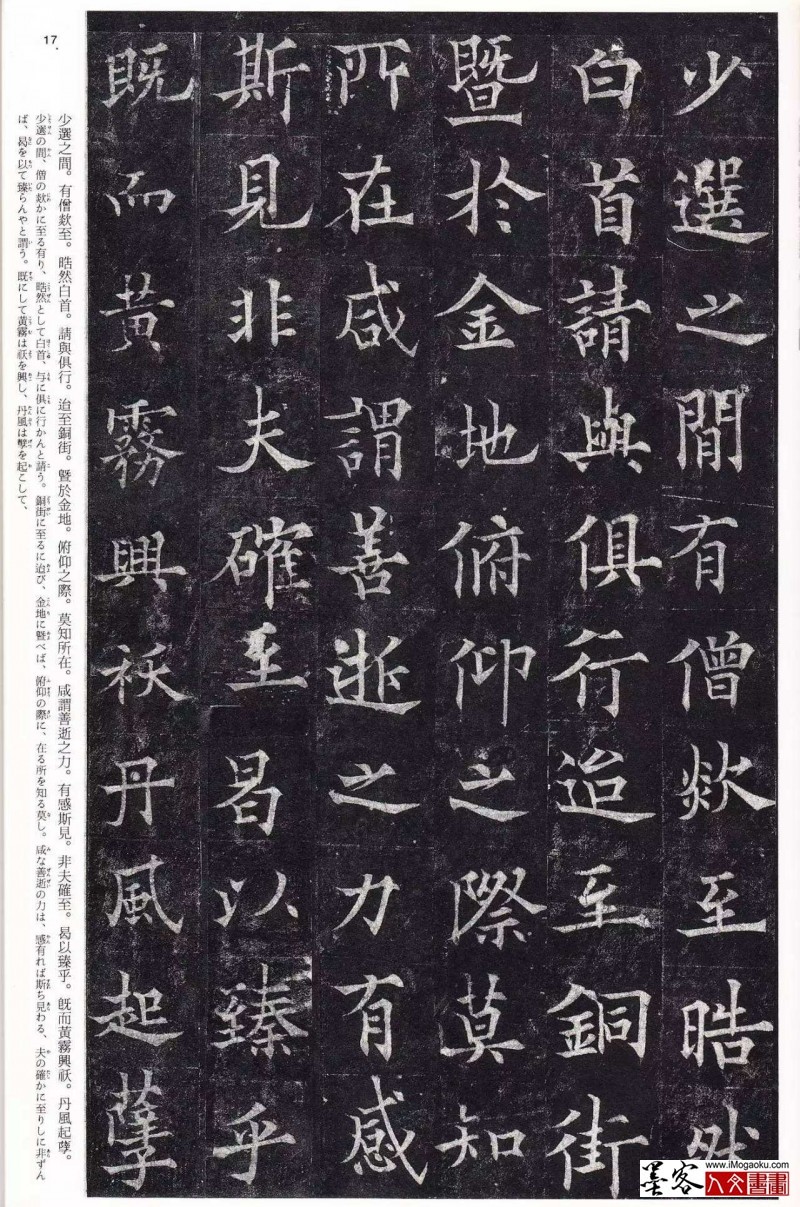 少選之間有僧欻至晧然
白首請與俱行迨至銅街
曁於金地俯仰之際莫知
所在咸謂善逝之力有感
斯見非夫確至曷以臻乎
既而黃霧興祅丹風起孽
少選之間。有僧欻至。晧然白首。請與俱行。迨至銅街。曁於金地。俯仰之際。莫知所在。咸謂善逝之力。有感斯見。非夫確至。曷以臻乎。既而黃霧興祅。丹風起孽。
少選の間、僧の欻かに至る有り、晧然として白首、与に俱に行かんと請う。銅街に至るに迨び、金地に曁べば、俯仰の際に、在る所を知る莫し。咸な善逝の力は、感有れば斯ち見わる、夫の確かに至りしに非ずん
ば、曷を以て臻らんやと謂う。既にして黃霧は祅を興し、丹風は孽を起こして、
17
墨客
www.iMogaoku.com
人文書畫